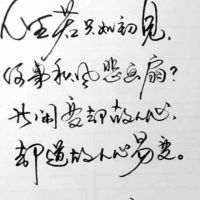 人生若只如初见,
何事秋风悲画扇?
等闲变却故人心,
却道故人心易变。